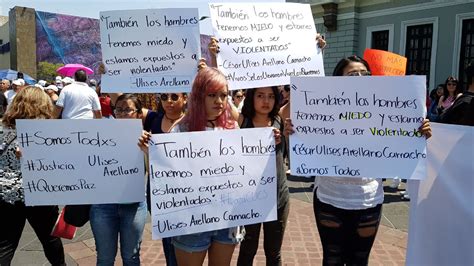 "También los hombres
tenemos miedo y
estamos expuestos a ser
violentados"
Ulises Arellano
"También los hombres
tenemos MIEDO y estamos
expuestos a ser
VIOLENTADOS"
César Ulises Arellano Camacho.
"También los hombres
tenemos MIEDO y estamos
expuestos a ser Violentados
César Ulises Arellano Camacho
#Somos Todos
#Somos Todxs
#Justicia Ulises
Arellano
#Queremos Paz
"También los hombres
tenemos miedo y
estamos expuestos a ser
violentados"
Ulises Arellano Camacho.